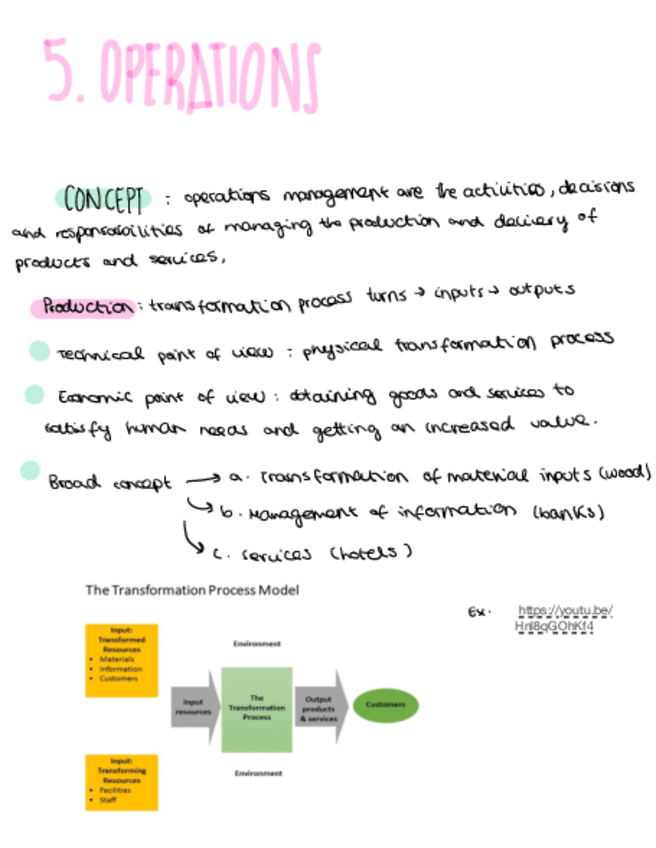 5. OPERATIONS
CONCEPT : operations management are the activities, decisions
and responsabilities of managing the production and delivery of
products and services,
Production : transformation process turns → inputs → outputs
Technical point of view : physical transformation process
Economic point of view : obtaining goods and services to
satisfy human needs and getting an increased value.
Broad concept → a. Transformation of material inputs (wood)
↳ b. Management of information (banks)
↳ c. services (hotels)
The Transformation Process Model
Ex. https://youtu.be/
HnI8qGOhKf4
Input:
Transformed
Resources
• Materials
• Information
• Customers
Environment
Input
resources
The
Transformation
Process
Output
products
& services
Customers
Input:
Transforming
Resources
• Facilities
• Staff
Environment